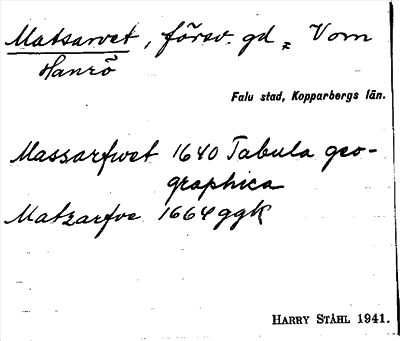 Matsarvet, försv. gd = Vom
Hanrö
Falu stad, Kopparbergs län.
Massarfwet 1640 Tabula geo-
graphica
Matzarfve 1664 ggk
HARRY STÅHL 1941.